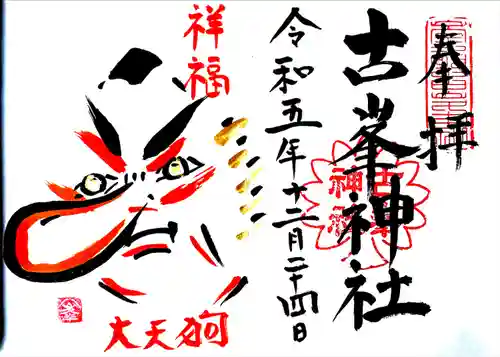 奉拝
古峯神社
令和五年十二月二十四日
祥福
大天狗